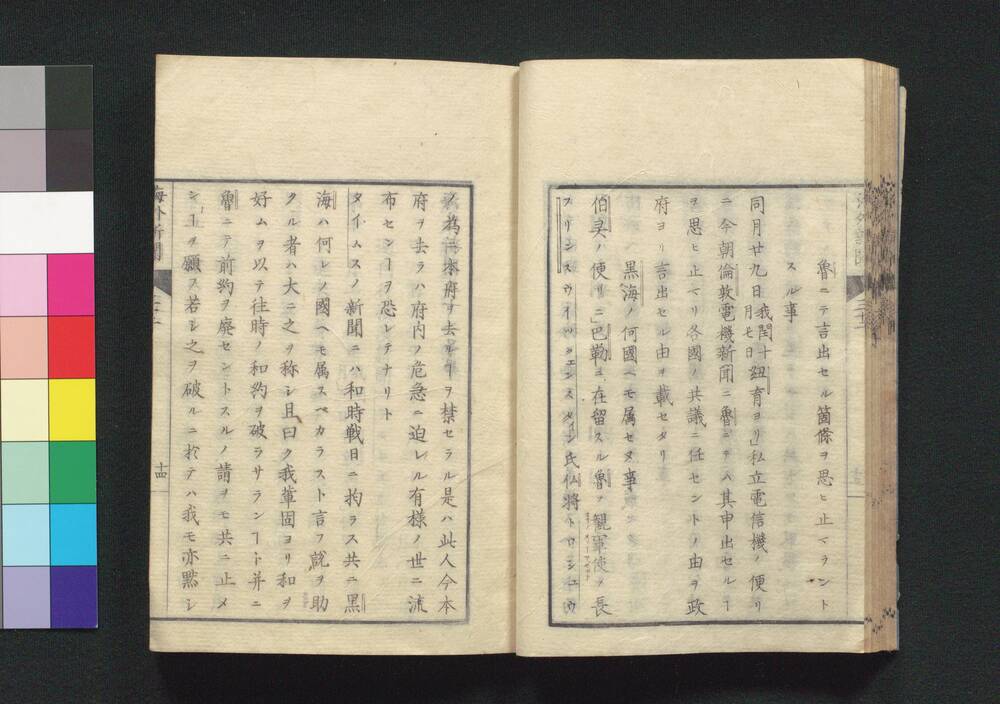 魯ニテ言出セル箇條ヲ思ヒ止マラント
スル事
同月廿九日我閏十月七日紐育ヨリ」私立電信機ノ便リ
ニ今朝倫敦電機新聞ニ魯ニテハ其申出セルヿ
ヲ思ヒ止マリ各國ノ共議ニ任セントノ由ヲ政
府ヨリ言出セル由ヲ載セタリ
黒海ノ何國ヘモ属セヌ事
伯灵ノ便リニ」巴勒ニ在留スル魯ノ観軍使ノ長
フリンスウイツゲエンスタイン氏仏將トロシユウ
ノ為ニ本府ヲ去ルヿヲ禁セラル是ハ此人今本
府ヲ去ラハ府内ノ危急ニ迫レル有様ノ世ニ流
布センヿヲ恐レテナリト
タイムスノ新聞ニハ和時戦日ニ拘ラス共ニ黒
海ハ何レノ國ヘモ属スベカラスト言フ説ヲ助
クル者ハ大ニ之ヲ称シ且曰ク我輩固ヨリ和ヲ
好ムヲ以テ往時ノ和約ヲ破ラサランヿト并ニ
魯ニテ前約ヲ廃セントスルノ請ヲモ共ニ止メ
ンヿヲ願フ若シ之ヲ破ルニ於テハ我モ亦黙シ
海外新聞
十四